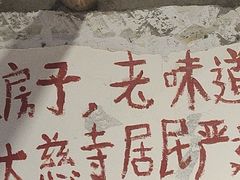 房子，老味道
大慈寺居民严